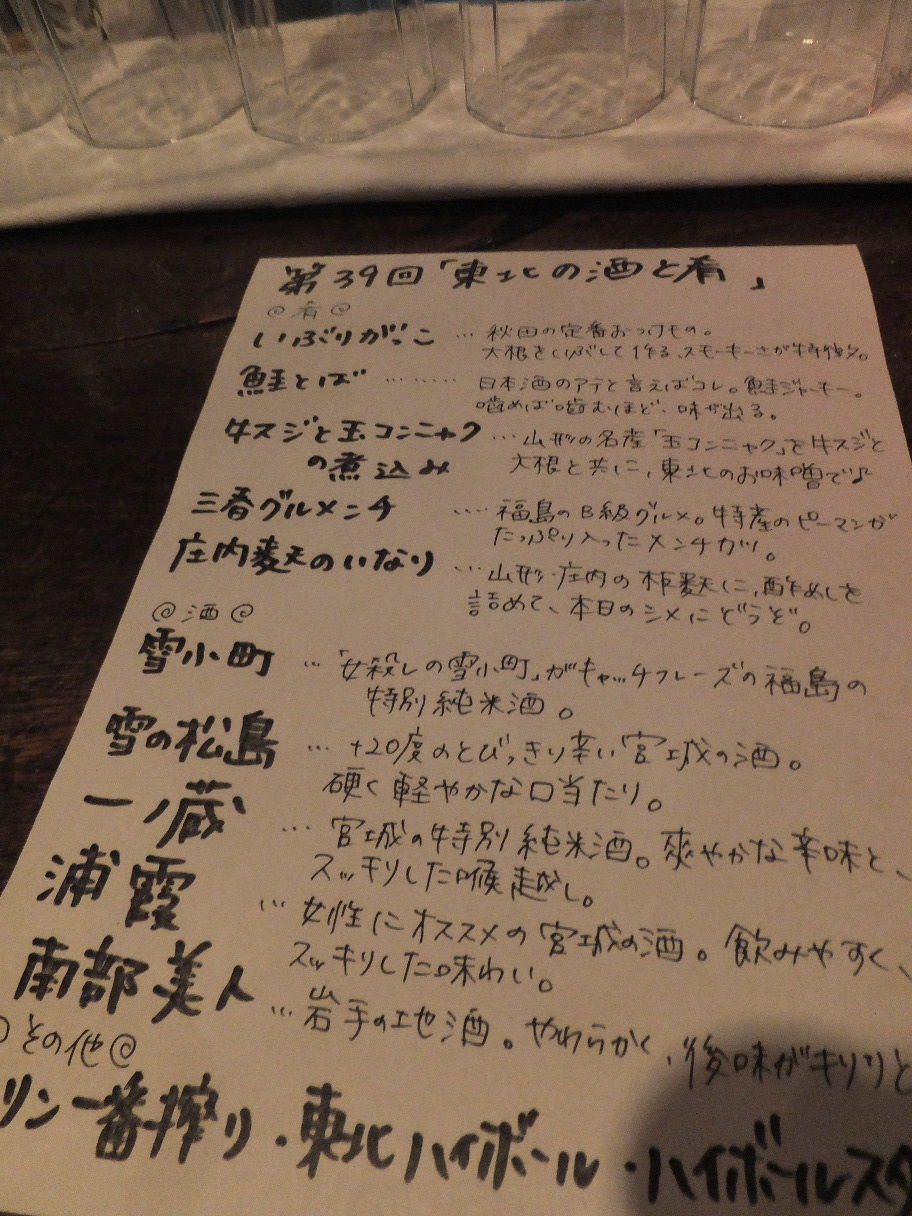 第39回「東北の酒と肴」
@肴@
いぶりがっこ … 秋田の定番おつけもの。
大根をいぶして作る、スモーキーさが特徴。
鮭とば ……… 日本酒のアテと言えばコレ。鮭ジャーキー。
噛めば噛むほど、味が出る。
牛スジと玉コンニャク … 山形の名産「玉コンニャク」を牛スジと
の煮込み 大根と共に、東北のお味噌で♪
三春グルメンチ …… 福島のB級グルメ。特産のピーマンが
たっぷり入ったメンチカツ。
庄内麩のいなり … 山形・庄内の板麩に、酢めしを
詰めて、本日のシメにどうぞ。
@酒@
雪小町 … 「女殺しの雪小町」がキャッチフレーズの福島の
特別純米酒。
雪の松島 … +20度のとびっきり辛い宮城の酒。
硬く軽やかな口当たり。
一ノ蔵 … 宮城の特別純米酒。爽やかな辛味と、
スッキリした喉越し。
浦霞 … 女性にオススメの宮城の酒。飲みやすく、
スッキリした味わい。
南部美人 … 岩手の地酒。やわらかく、後味がキリリと
その他@
リン一番搾り・東北ハイボール・ハイボールスタ